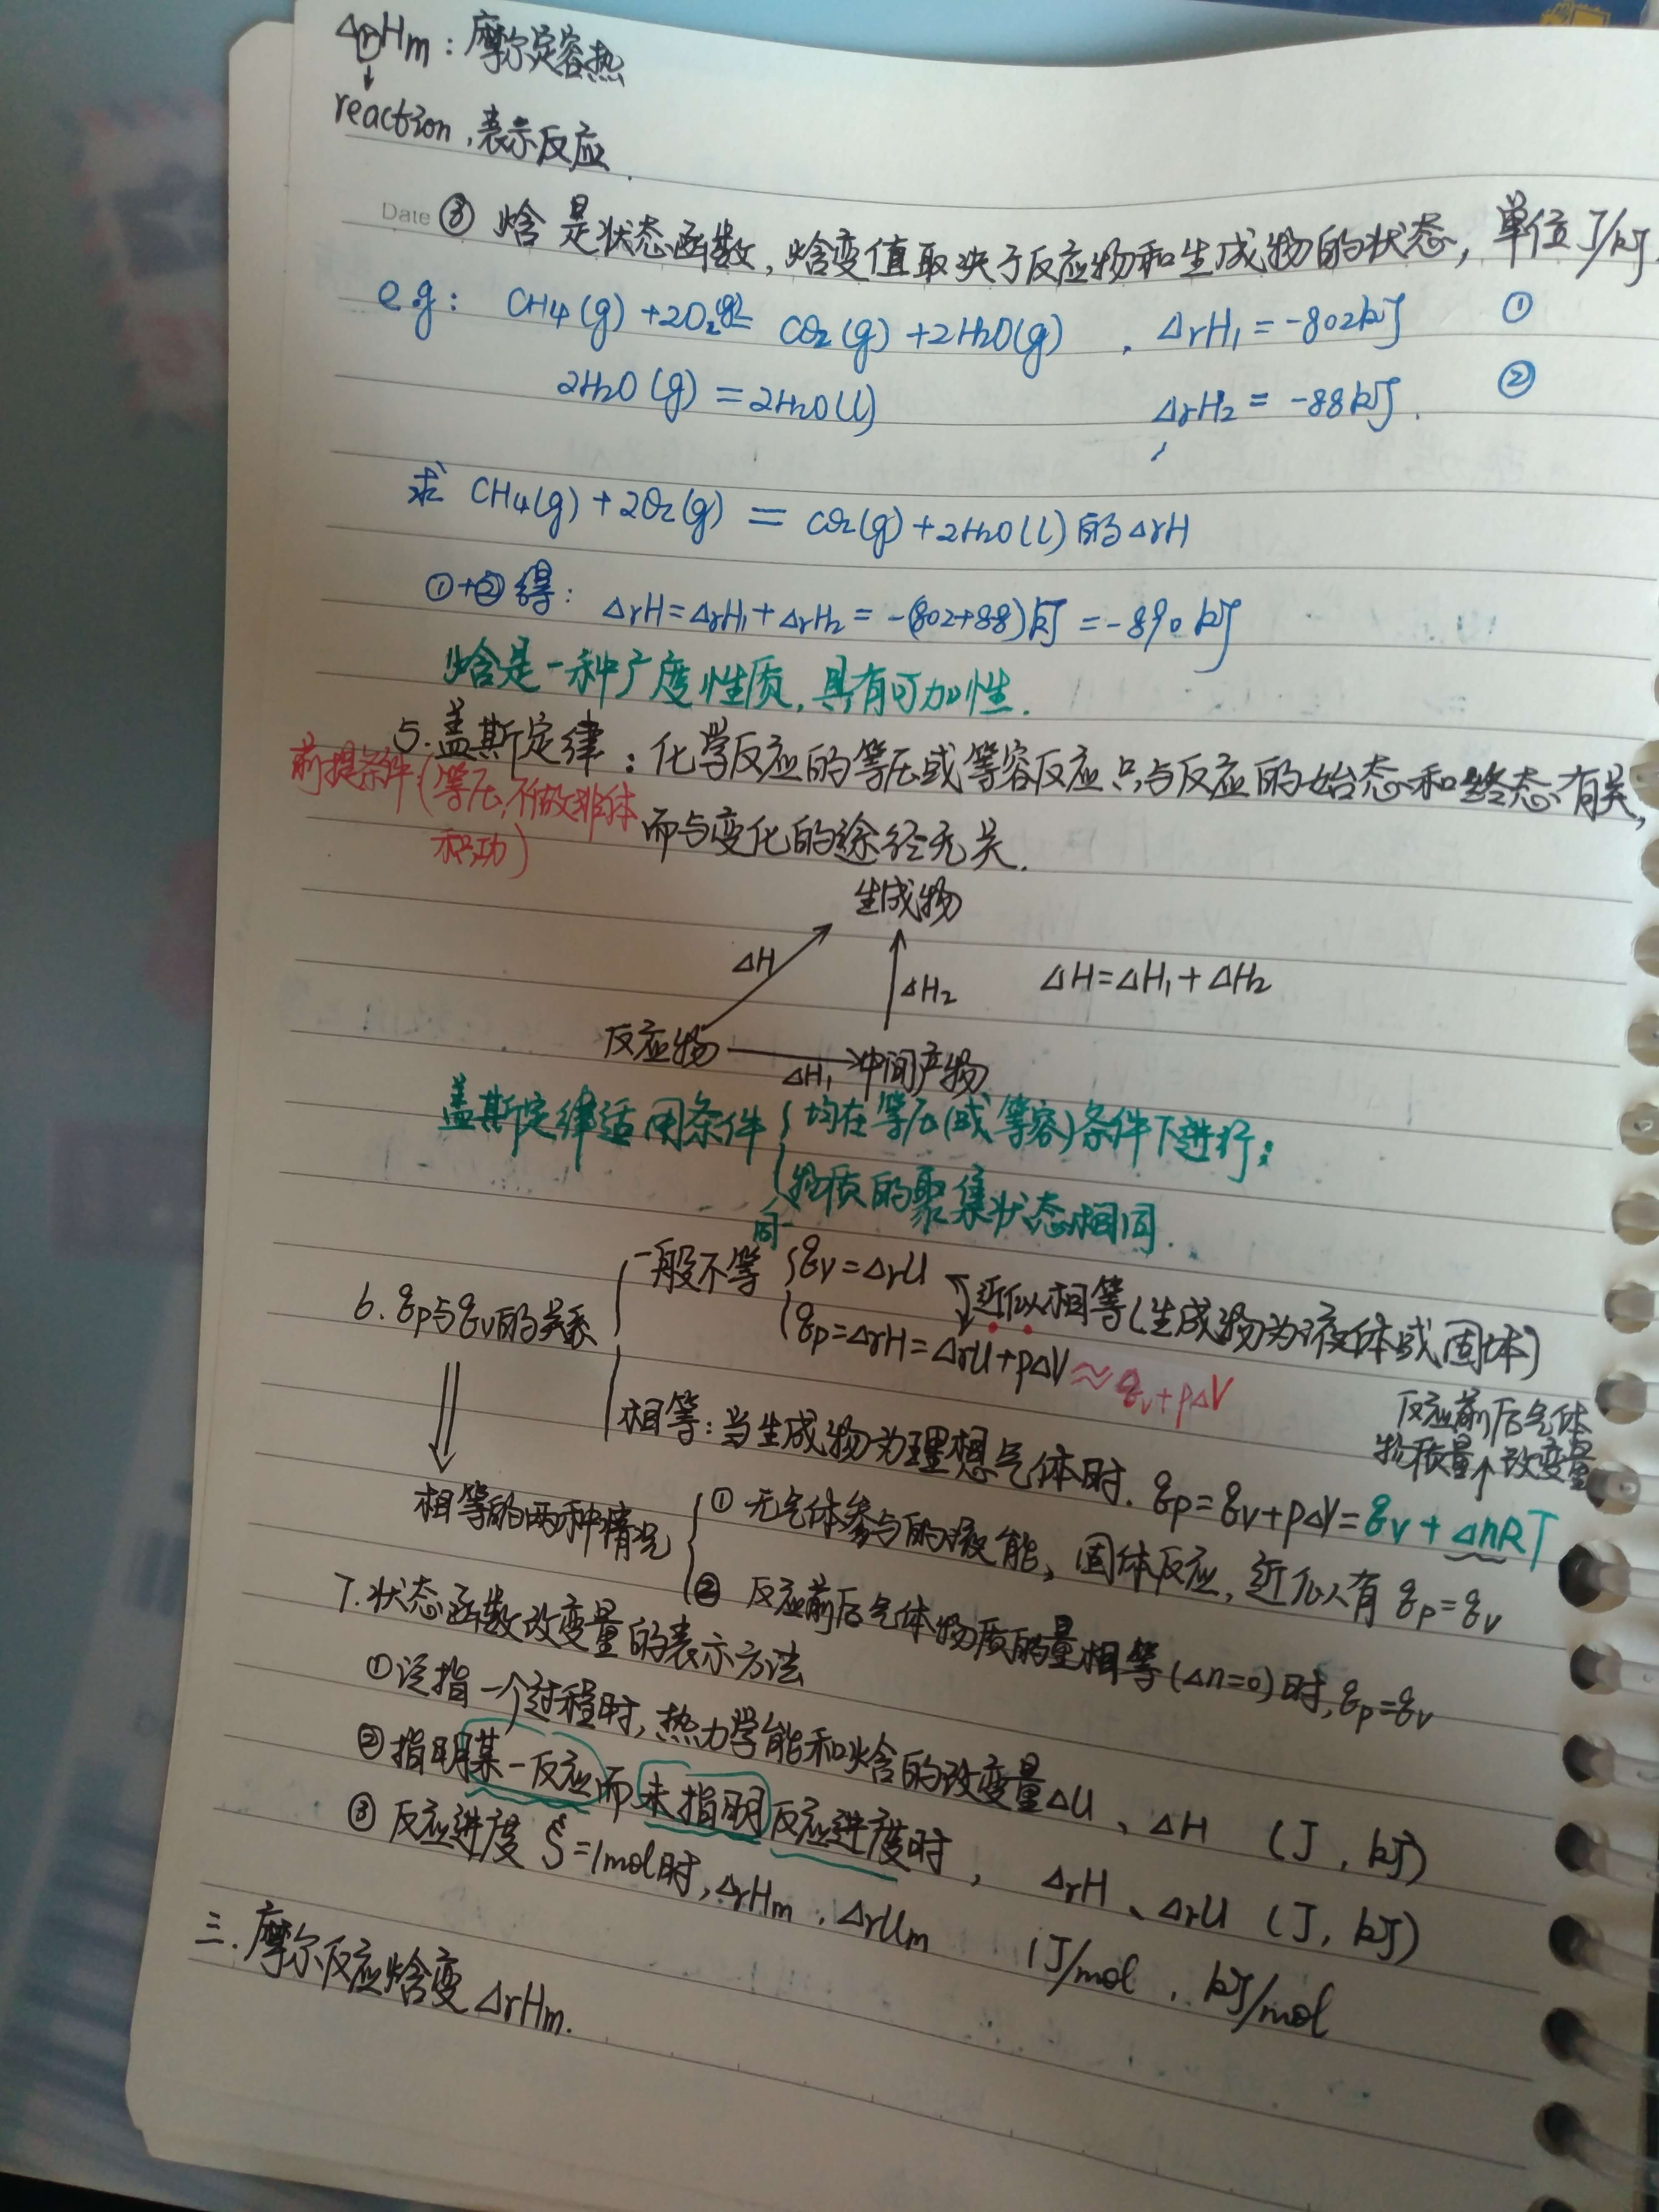 ΔrHm：摩尔定容热
reaction，表示反应
Date ③ 焓是状态函数，焓变值取决于反应物和生成物的状态，单位J/kJ.
e.g: CH4(g)+2O2(g)= CO2(g)+2H2O(g)，ΔrH1=-802kJ ①
2H2O(g)=2H2O(l) ΔrH2=-88kJ. ②
求 CH4(g)+2O2(g)=CO2(g)+2H2O(l)的ΔrH
①+②得：ΔrH=ΔrH1+ΔrH2=-(802+88)kJ=-890kJ
焓是一种广度性质，具有可加性.
5.盖斯定律：化学反应的等压或等容反应只与反应的始态和终态有关，
前提条件(等压,不做非体
积功)
而与变化的途径无关.
生成物
ΔH ΔH2 ΔH=ΔH1+ΔH2
反应物 ΔH1 中间产物
盖斯定律适用条件 均在等压(或等容)条件下进行；
物质的聚集状态相同.
同
一般不等 qv=ΔrU
6.qp与qv的关系 近似相等(生成物为液体或固体)
qp=ΔrH=ΔrU+pΔV≈qv+pΔV
反应前后气体
物质量个改变量
相等：当生成物为理想气体时. qp=qv+pΔV=qv+ΔnRT
相等的两种情况 ①无气体参与的液能，固体反应，近似有qp=qv
② 反应前后气体物质的量相等(Δn=0)时,qp=qv
7.状态函数改变量的表示方法
①泛指一个过程时,热力学能和焓的改变量ΔU、ΔH (J,kJ)
②指明某一反应而未指明反应进度时，ΔrH、ΔrU (J,kJ)
③ 反应进度ξ=1mol时,ΔrHm，ΔrUm (J/mol，kJ/mol
三.摩尔反应焓变ΔrHm.